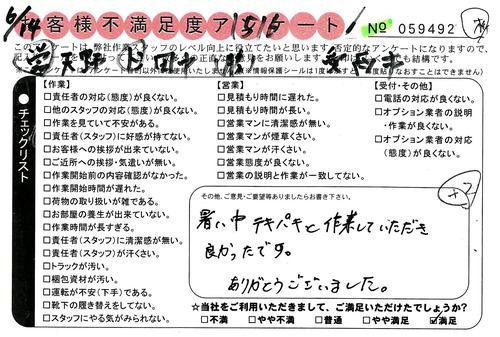 6/14 お客様不満足度アンケート 1516
No 059492
このアンケートは、弊社作業スタッフのレベル向上に役立てたいと思います。否定的なアンケートになりますので、
チェックリスト
【作業】
□責任者の対応(態度)が良くない。
□他のスタッフの対応(態度)が良くない。
□作業を見ていて不安がある。
□責任者(スタッフ)に好感が持てない。
□お客様への挨拶が出来ていない。
□ご近所への挨拶・気遣いが無い。
□作業開始前の内容確認がなかった。
□作業開始時間が遅れた。
□荷物の取り扱いが雑である。
□お部屋の養生が出来ていない。
□作業時間が長すぎる。
□責任者(スタッフ)に清潔感が無い。
□責任者(スタッフ)が汗くさい。
□トラックが汚い。
□梱包資材が汚い。
□運転が不安(下手)である。
□靴下の履き替えをしてない。
□スタッフにやる気がみられない。
【営業】
□見積もり時間に遅れた。
□見積もり時間が長い。
□営業マンに清潔感が無い。
□営業マンが煙草くさい。
□営業マンが汗くさい。
□営業態度が良くない。
□営業の説明と作業が一致してない。
【受付・その他】
□電話の対応が良くない。
□オプション業者の説明
・作業が良くない。
□オプション業者の対応
(態度)が良くない。
その他、ご意見・ご要望等ありましたらお書き下さい。
+2
暑い中テキパキと作業していただき
良かったです。
ありがとうございました。
☆当社をご利用いただきまして、ご満足いただけたでしょうか?
□不満 □やや不満 □普通 □やや満足 ☑満足